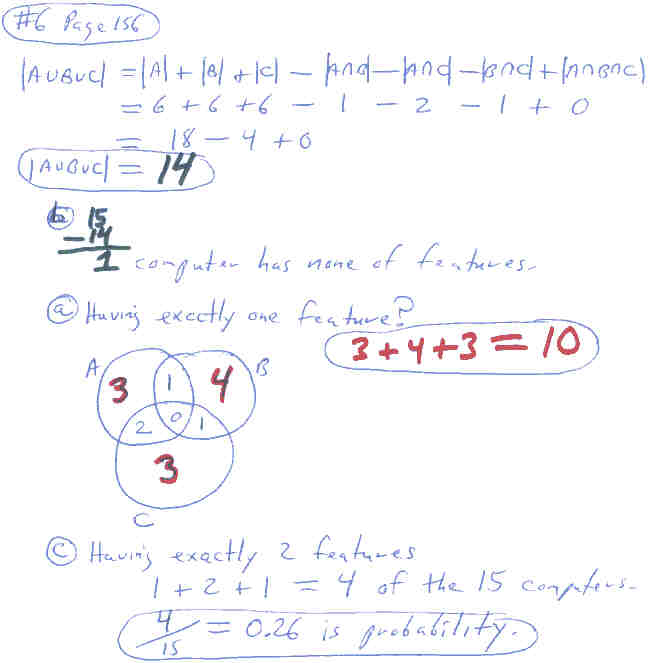 #6 Page 156
|A∪B∪C| = |A| + |B| + |C| - |A∩B| - |A∩C| - |B∩C| + |A∩B∩C|
= 6 + 6 + 6 - 1 - 2 - 1 + 0
= 18 - 4 + 0
|A∪B∪C| = 14
b 15
- 14
1 computer has none of features.
a Having exactly one feature?
3 + 4 + 3 = 10
A B
3 1 4
2 0 1
3
C
c Having exactly 2 features
1 + 2 + 1 = 4 of the 15 computers.
4/15 = 0.26 is probability.